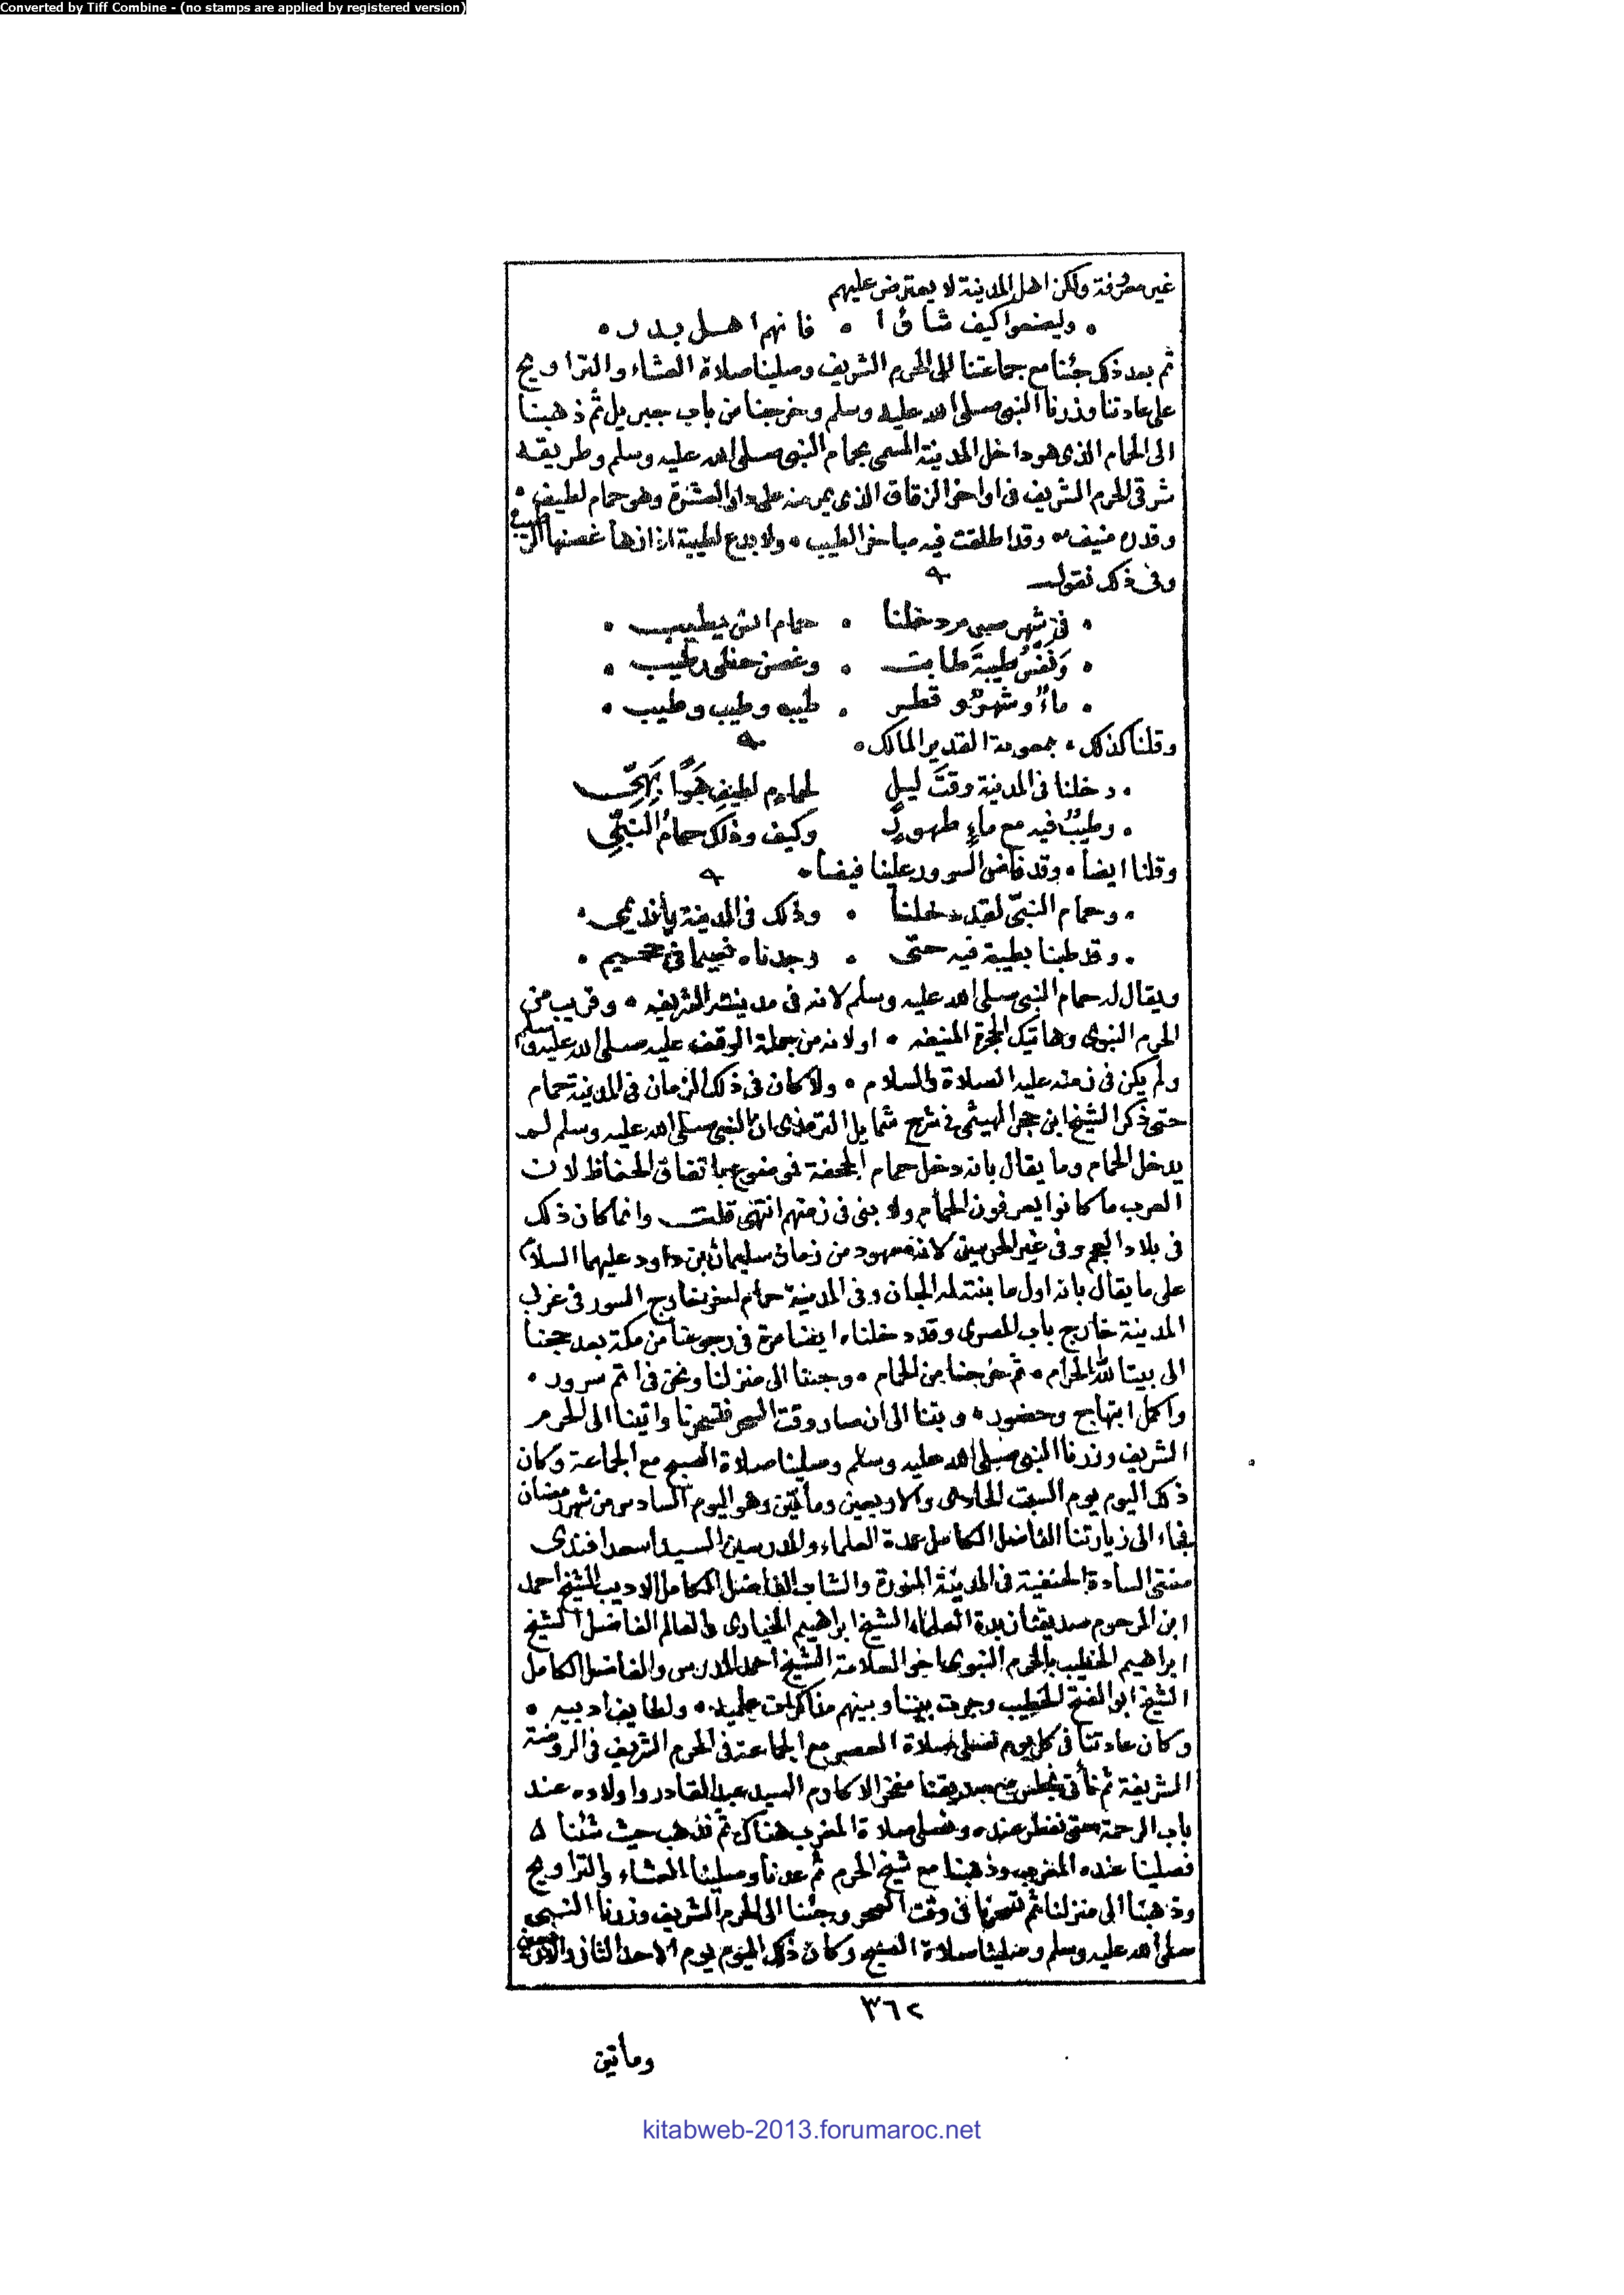 Converted by Tiff Combine - (no stamps are applied by registered version)
غير معروفة ولكن اهل المدينة لا يعترض عليهم
• وليصنعوا كيف شاؤا • فانهم اهل بدر •
ثم بعد ذلك جئنا مع جماعتنا الى الحرم الشريف وصلينا صلاة العشاء والتراويح
على عادتنا وزرنا النبي صلى الله عليه وسلم وخرجنا من باب جبريل ثم ذهبنا
الى الحمام الذي هو داخل المدينة المسمى بحمام النبي صلى الله عليه وسلم وطريقه
شرقي الحرم الشريف في اواخر الزقاق الذي يمر منه على دار العشرة وهو حمام لطيف •
وقدره منيف • وقد اطلقت فيه مباخر الطيب • ولا بدع لطيبة اذا زها غصنها الرطيب
وفي ذلك نقول
• في شهر صومي دخلنا • حمام انس يطيب •
• ونَفْسُ طيبةَ طابت • وغصن حظي رطيب •
• ماءٌ وشهرٌ وقطر • طيبه وطيب وطيب •
وقلنا كذلك • بمعونة القدير المالك •
• دخلنا في المدينة وقتَ ليلٍ لحمامٍ لطيفٍ هَوًا بَهِيِّ
• وطيبٌ فيه مع ماءٍ طهورٍ وكيف وذلك حمامُ النبيِّ
وقلنا ايضا • وقد فاض السرور علينا فيضا •
• وحمام النبيّ لقد دخلنا • وذلك في المدينة يا نديمي •
• وقد طبنا بطيبة فيه حتى • وجدناه نعيما في جحيم •
ويقال له حمام النبي صلى الله عليه وسلم لانه في مدينته الشريفه • وقريب من
الحرم النبوي وهاتيك الحجرة المنيفه • او لانه من جملة الوقف عليه صلى الله عليه وسلم
ولم يكن في زمنه عليه الصلاة والسلام • ولا كان في ذلك الزمان في المدينة حمام
حتى ذكر الشيخ ابن حجر الهيثمي في شرح شمايل الترمذي ان النبي صلى الله عليه وسلم لم
يدخل الحمام وما يقال بانه دخل حمام الجحفة فموضوع باتفاق الحفاظ لان
العرب ما كانوا يعرفون الحمام ولا بني في زمنهم انتهى قلت وانما كان ذلك
في بلاد العجم وفي غير الحرمين لانه معهود من زمان سليمان بن داود عليهما السلام
على ما يقال بانه اول ما بنته له الجان وفي المدينة حمام اخر خارج السور في غرب
المدينة خارج باب المصري وقد دخلناه ايضا مرة في رجوعنا من مكة بعد حجنا
الى بيت الله الحرام • ثم خرجنا من الحمام • وجئنا الى منزلنا ونحن في اتم سرور •
واكمل ابتهاج وحضور • وبتنا الى ان صار وقت السحر فتسحرنا واتينا الى الحرم
الشريف وزرنا النبي صلى الله عليه وسلم وصلينا صلاة الصبح مع الجماعة وكان
ذلك اليوم يوم السبت الحادي والاربعين ومأتين وهو اليوم السادس من شهر رمضان
فجاء الى زيارتنا الفاضل الكامل عمدة العلماء والمدرسين السيد اسعد افندي
مفتي السادة الحنفية في المدينة المنورة والشاب الفاضل الكامل الاديب الشيخ احمد
ابن المرحوم صديقنا زبدة العلماء الشيخ ابراهيم الخياري والعالم الفاضل الشيخ
ابراهيم الخطيب بالحرم النبوي اخو العلامة الشيخ احمد المدرس والفاضل الكامل
الشيخ ابو الفتح الخطيب وجرت بيننا وبينهم مذاكرات علميه • ولطايف ادبيه •
وكان عادتنا في كل يوم نصلي صلاة العصر مع الجماعة في الحرم الشريف في الروضة
الشريفة ثم نأتي نجلس مع صديقنا مفخر الاكارم السيد عبد القادر واولاده عند
باب الرحمة حتى نفطر عنده ونصلي صلاة المغرب هناك ثم نذهب حيث شئنا
فصلينا عنده المغرب وذهبنا مع شيخ الحرم ثم عدنا وصلينا العشاء والتراويح
وذهبنا الى منزلنا ثم تسحرنا في وقت السحر وجئنا الى الحرم الشريف وزرنا النبي
صلى الله عليه وسلم وصلينا صلاة الصبح وكان ذلك اليوم يوم الاحد الثاني والاربعين
٣٦٢
ومأتين
kitabweb-2013.forumaroc.net